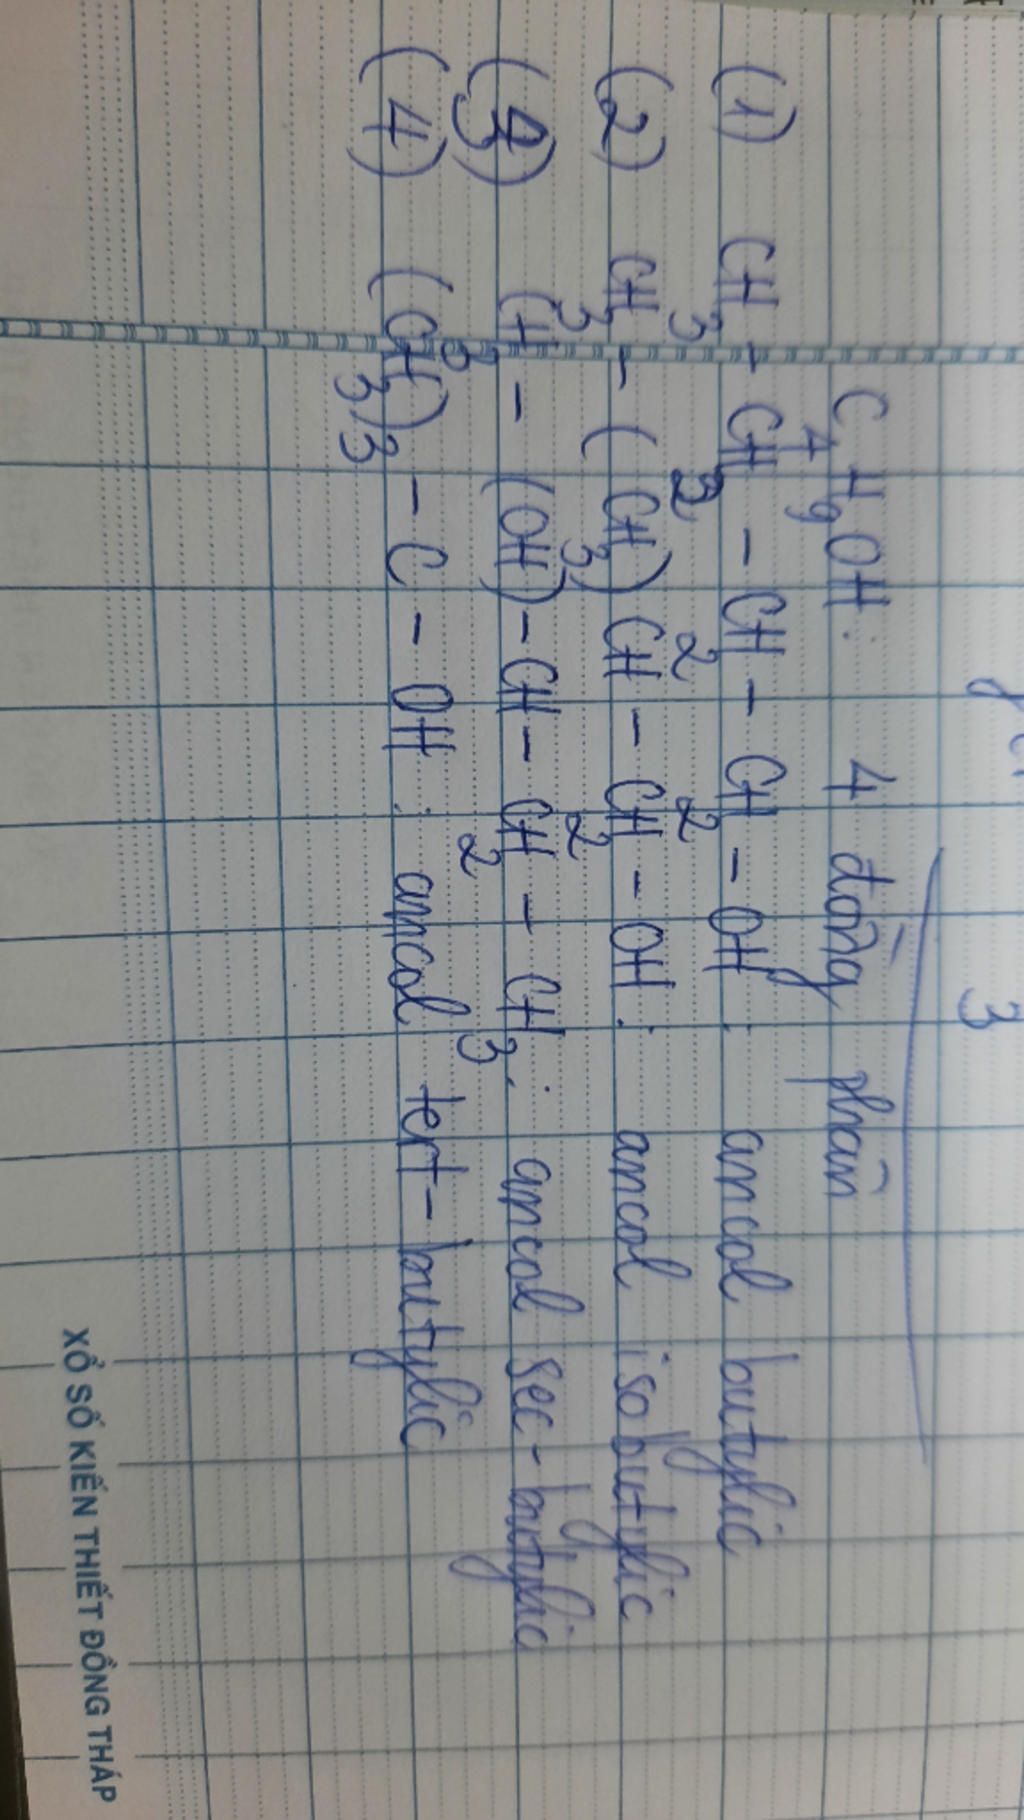 3
C4H9OH: 4 đồng phân
(1) CH3 - CH2 - CH2 - CH2 - OH: ancol butylic
(2) CH3 - (CH3)CH - CH2 - OH: ancol isobutylic
(3) CH3 - (OH) - CH - CH2 - CH3: ancol sec-butylic
(4) (CH3)3 - C - OH: ancol tert-butylic
XỔ SỐ KIẾN THIẾT ĐỒNG THÁP